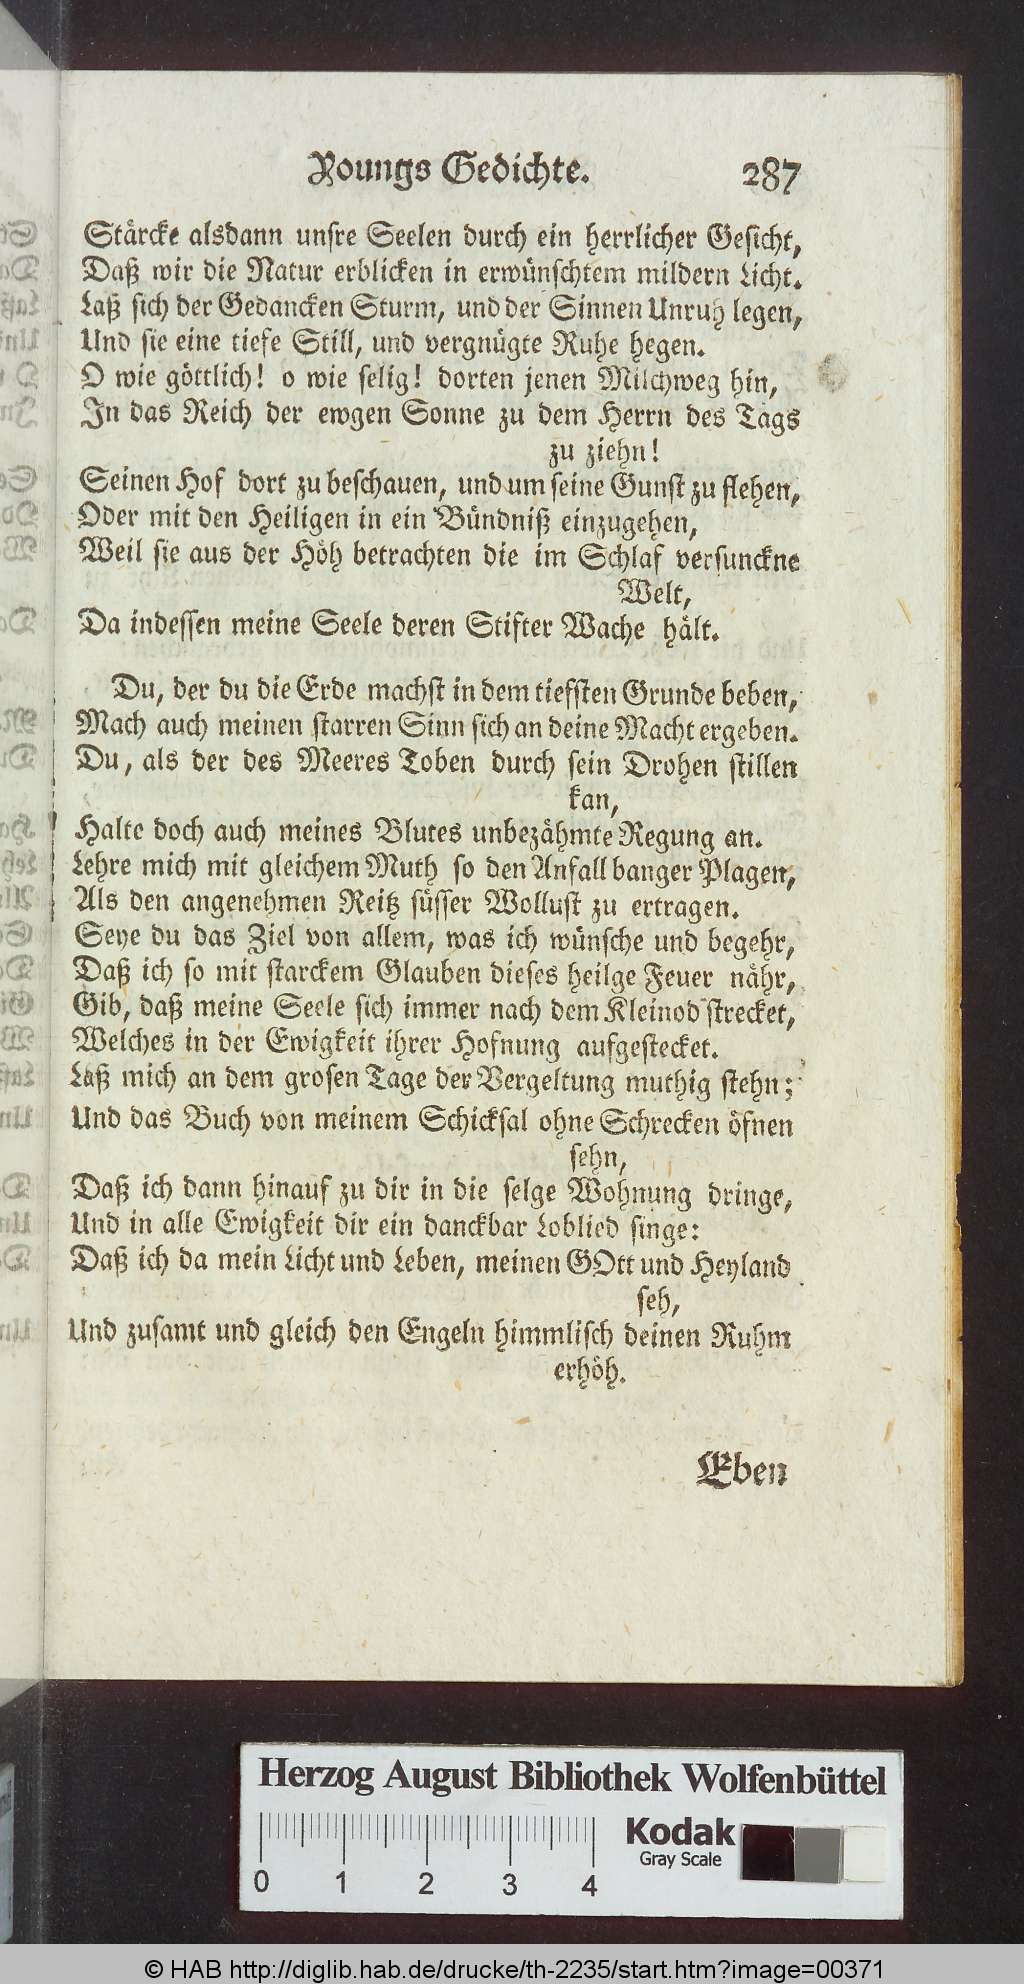 Youngs Gedichte. 287
Stärcke alsdann unsre Seelen durch ein herrlicher Gesicht,
Daß wir die Natur erblicken in erwünschtem mildern Licht.
Laß sich der Gedancken Sturm, und der Sinnen Unruh legen,
Und sie eine tiefe Still, und vergnügte Ruhe hegen.
O wie göttlich! o wie selig! dorten jenen Milchweg hin,
In das Reich der ewgen Sonne zu dem Herrn des Tags
zu ziehn!
Seinen Hof dort zu beschauen, und um seine Gunst zu flehen,
Oder mit den Heiligen in ein Bündniß einzugehen,
Weil sie aus der Höh betrachten die im Schlaf versunckne
Welt,
Da indessen meine Seele deren Stifter Wache hält.
Du, der du die Erde machst in dem tiefsten Grunde beben,
Mach auch meinen starren Sinn sich an deine Macht ergeben.
Du, als der des Meeres Toben durch sein Drohen stillen
kan,
Halte doch auch meines Blutes unbezähmte Regung an.
Lehre mich mit gleichem Muth so den Anfall banger Plagen,
Als den angenehmen Reitz süsser Wollust zu ertragen.
Seye du das Ziel von allem, was ich wünsche und begehr,
Daß ich so mit starckem Glauben dieses heilge Feuer nähr,
Gib, daß meine Seele sich immer nach dem Kleinod strecket,
Welches in der Ewigkeit ihrer Hofnung aufgestecket.
Laß mich an dem grosen Tage der Vergeltung muthig stehn;
Und das Buch von meinem Schicksal ohne Schrecken öfnen
sehn,
Daß ich dann hinauf zu dir in die selge Wohnung dringe,
Und in alle Ewigkeit dir ein danckbar Loblied singe:
Daß ich da mein Licht und Leben, meinen GOtt und Heyland
seh,
Und zusamt und gleich den Engeln himmlisch deinen Ruhm
erhöh.
Eben
Herzog August Bibliothek Wolfenbüttel
Kodak
Gray Scale
0 1 2 3 4
© HAB http://diglib.hab.de/drucke/th-2235/start.htm?image=00371